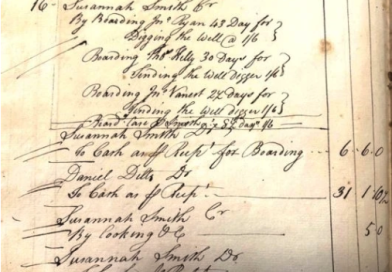 16- Susannah Smith Cr
By Boarding Jnº Ryan 43 Days for
Digging the Well @ 1/6
Boarding Thos Kelly 30 days for
Tending the Well Digger 1/6
Boarding Jnº Vanest 24 days for
Tending the Well digger 1/6
Board. Smith days 1/6
Susannah Smith Dr
To Cash as Recpt for Boarding 6-6-0
Daniel Dills Dr
To Cash as Recpt 31 1
Susannah Smith Cr
By Cooking &C 5 0
Susannah Smith Dr